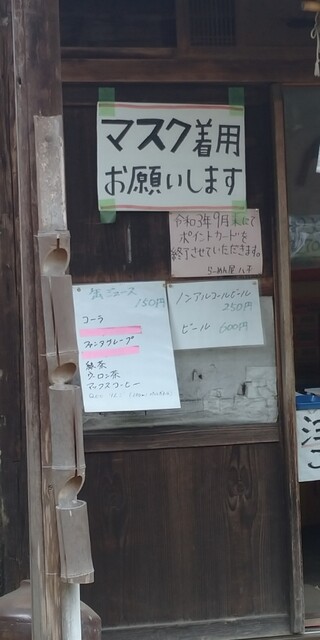 マスク着用
お願いします
令和3年9月末にて
ポイントカードを
終了させていただきます。
らーめん屋
缶ジュース
150円
コーラ
ファンタグレープ
緑茶
ウーロン茶
マックスコーヒー
ノンアルコールビール
250円
ビール 600円
注